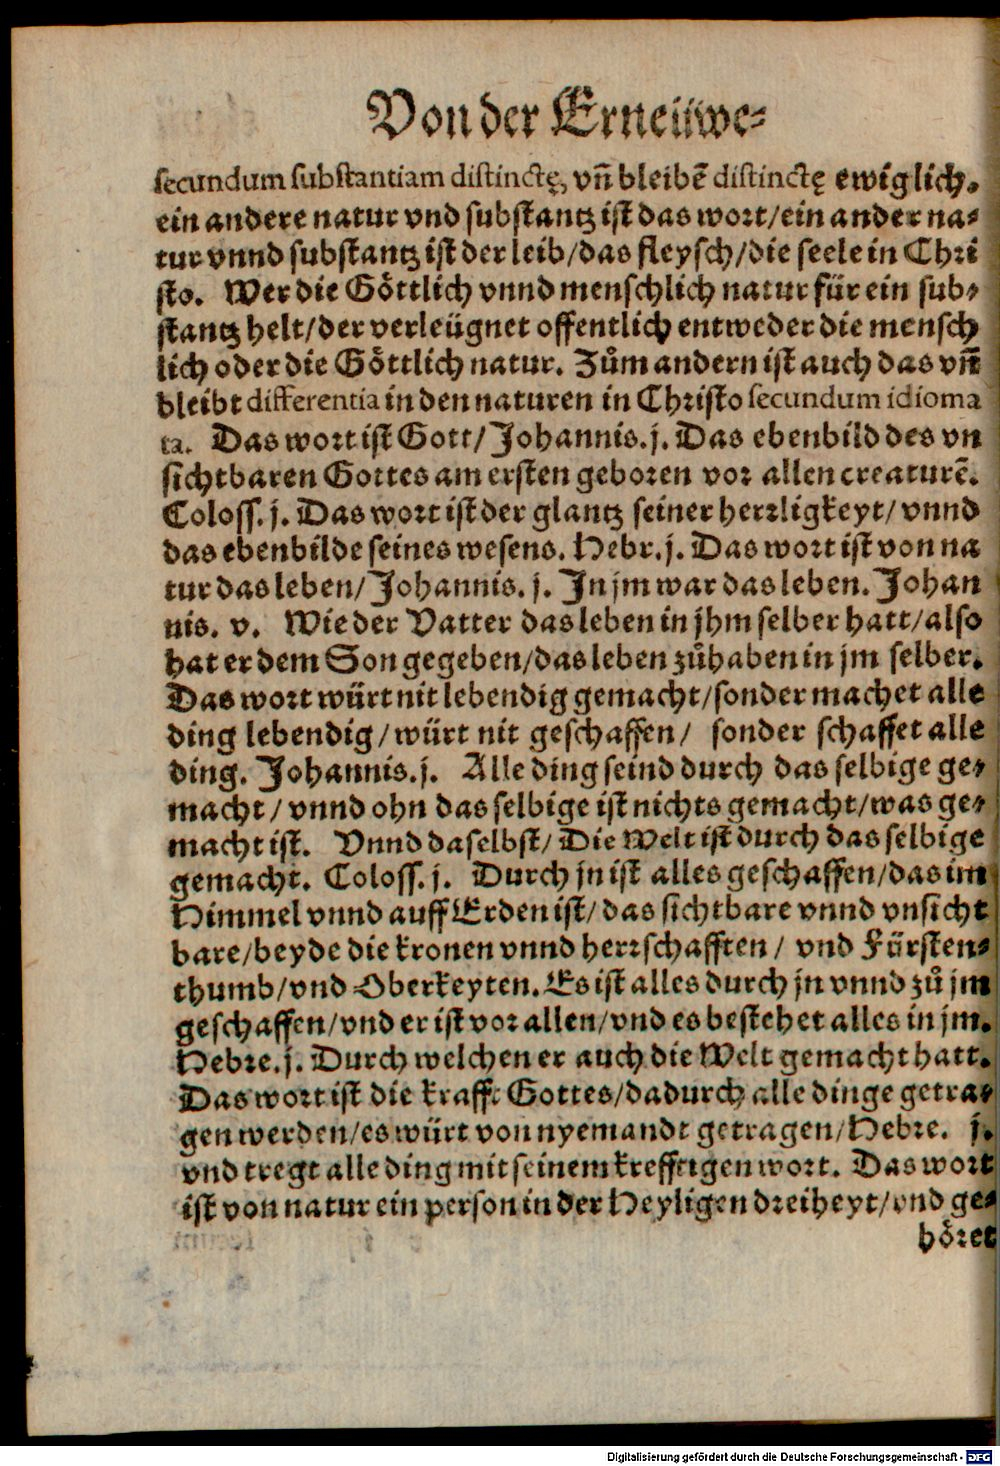 Von der Erneüwe-
secundum substantiam distinctę, vñ bleibẽ distinctę ewiglich.
ein andere natur vnd substantz ist das wort/ein ander na-
tur vnnd substantz ist der leib/das fleysch/die seele in Chri
sto. Wer die Göttlich vnnd menschlich natur für ein sub-
stantz helt/der verleügnet offentlich entweder die mensch
lich oder die Göttlich natur. Zům andern ist auch das vñ
bleibt differentia in den naturen in Christo secundum idioma
ta. Das wort ist Gott/Johannis.j. Das ebenbild des vn
sichtbaren Gottes am ersten geboren vor allen creaturẽ.
Coloss.j. Das wort ist der glantz seiner herrligkeyt/vnnd
das ebenbilde seines wesens. Hebr.j. Das wort ist von na
tur das leben/Johannis.j. In jm war das leben. Johan
nis. v. Wie der Vatter das leben in jhm selber hatt/also
hat er dem Son gegeben/das leben zů haben in jm selber.
Das wort würt nit lebendig gemacht/sonder machet alle
ding lebendig/würt nit geschaffen/ sonder schaffet alle
ding. Johannis.j. Alle ding seind durch das selbige ge-
macht/vnnd ohn das selbige ist nichts gemacht/was ge-
macht ist. Vnnd daselbst/Die Welt ist durch das selbige
gemacht. Coloss.j. Durch jn ist alles geschaffen/das im
Himmel vnnd auff Erden ist/das sichtbare vnnd vnsicht
bare/beyde die kronen vnnd herrschafften/ vnd Fürsten-
thumb/vnd Oberkeyten. Es ist alles durch jn vnnd zů jm
geschaffen/vnd er ist vor allen/vnd es bestehet alles in jm.
Hebre.j. Durch welchen er auch die Welt gemacht hatt.
Das wort ist die krafft Gottes/dadurch alle dinge getra-
gen werden/es würt von nyemandt getragen/Hebre. j.
vnd tregt alle ding mit seinem krefftigen wort. Das wort
ist von natur ein person in der Heyligen dreiheyt/vnd ge-
höret
Digitalisierung gefördert durch die Deutsche Forschungsgemeinschaft - DFG